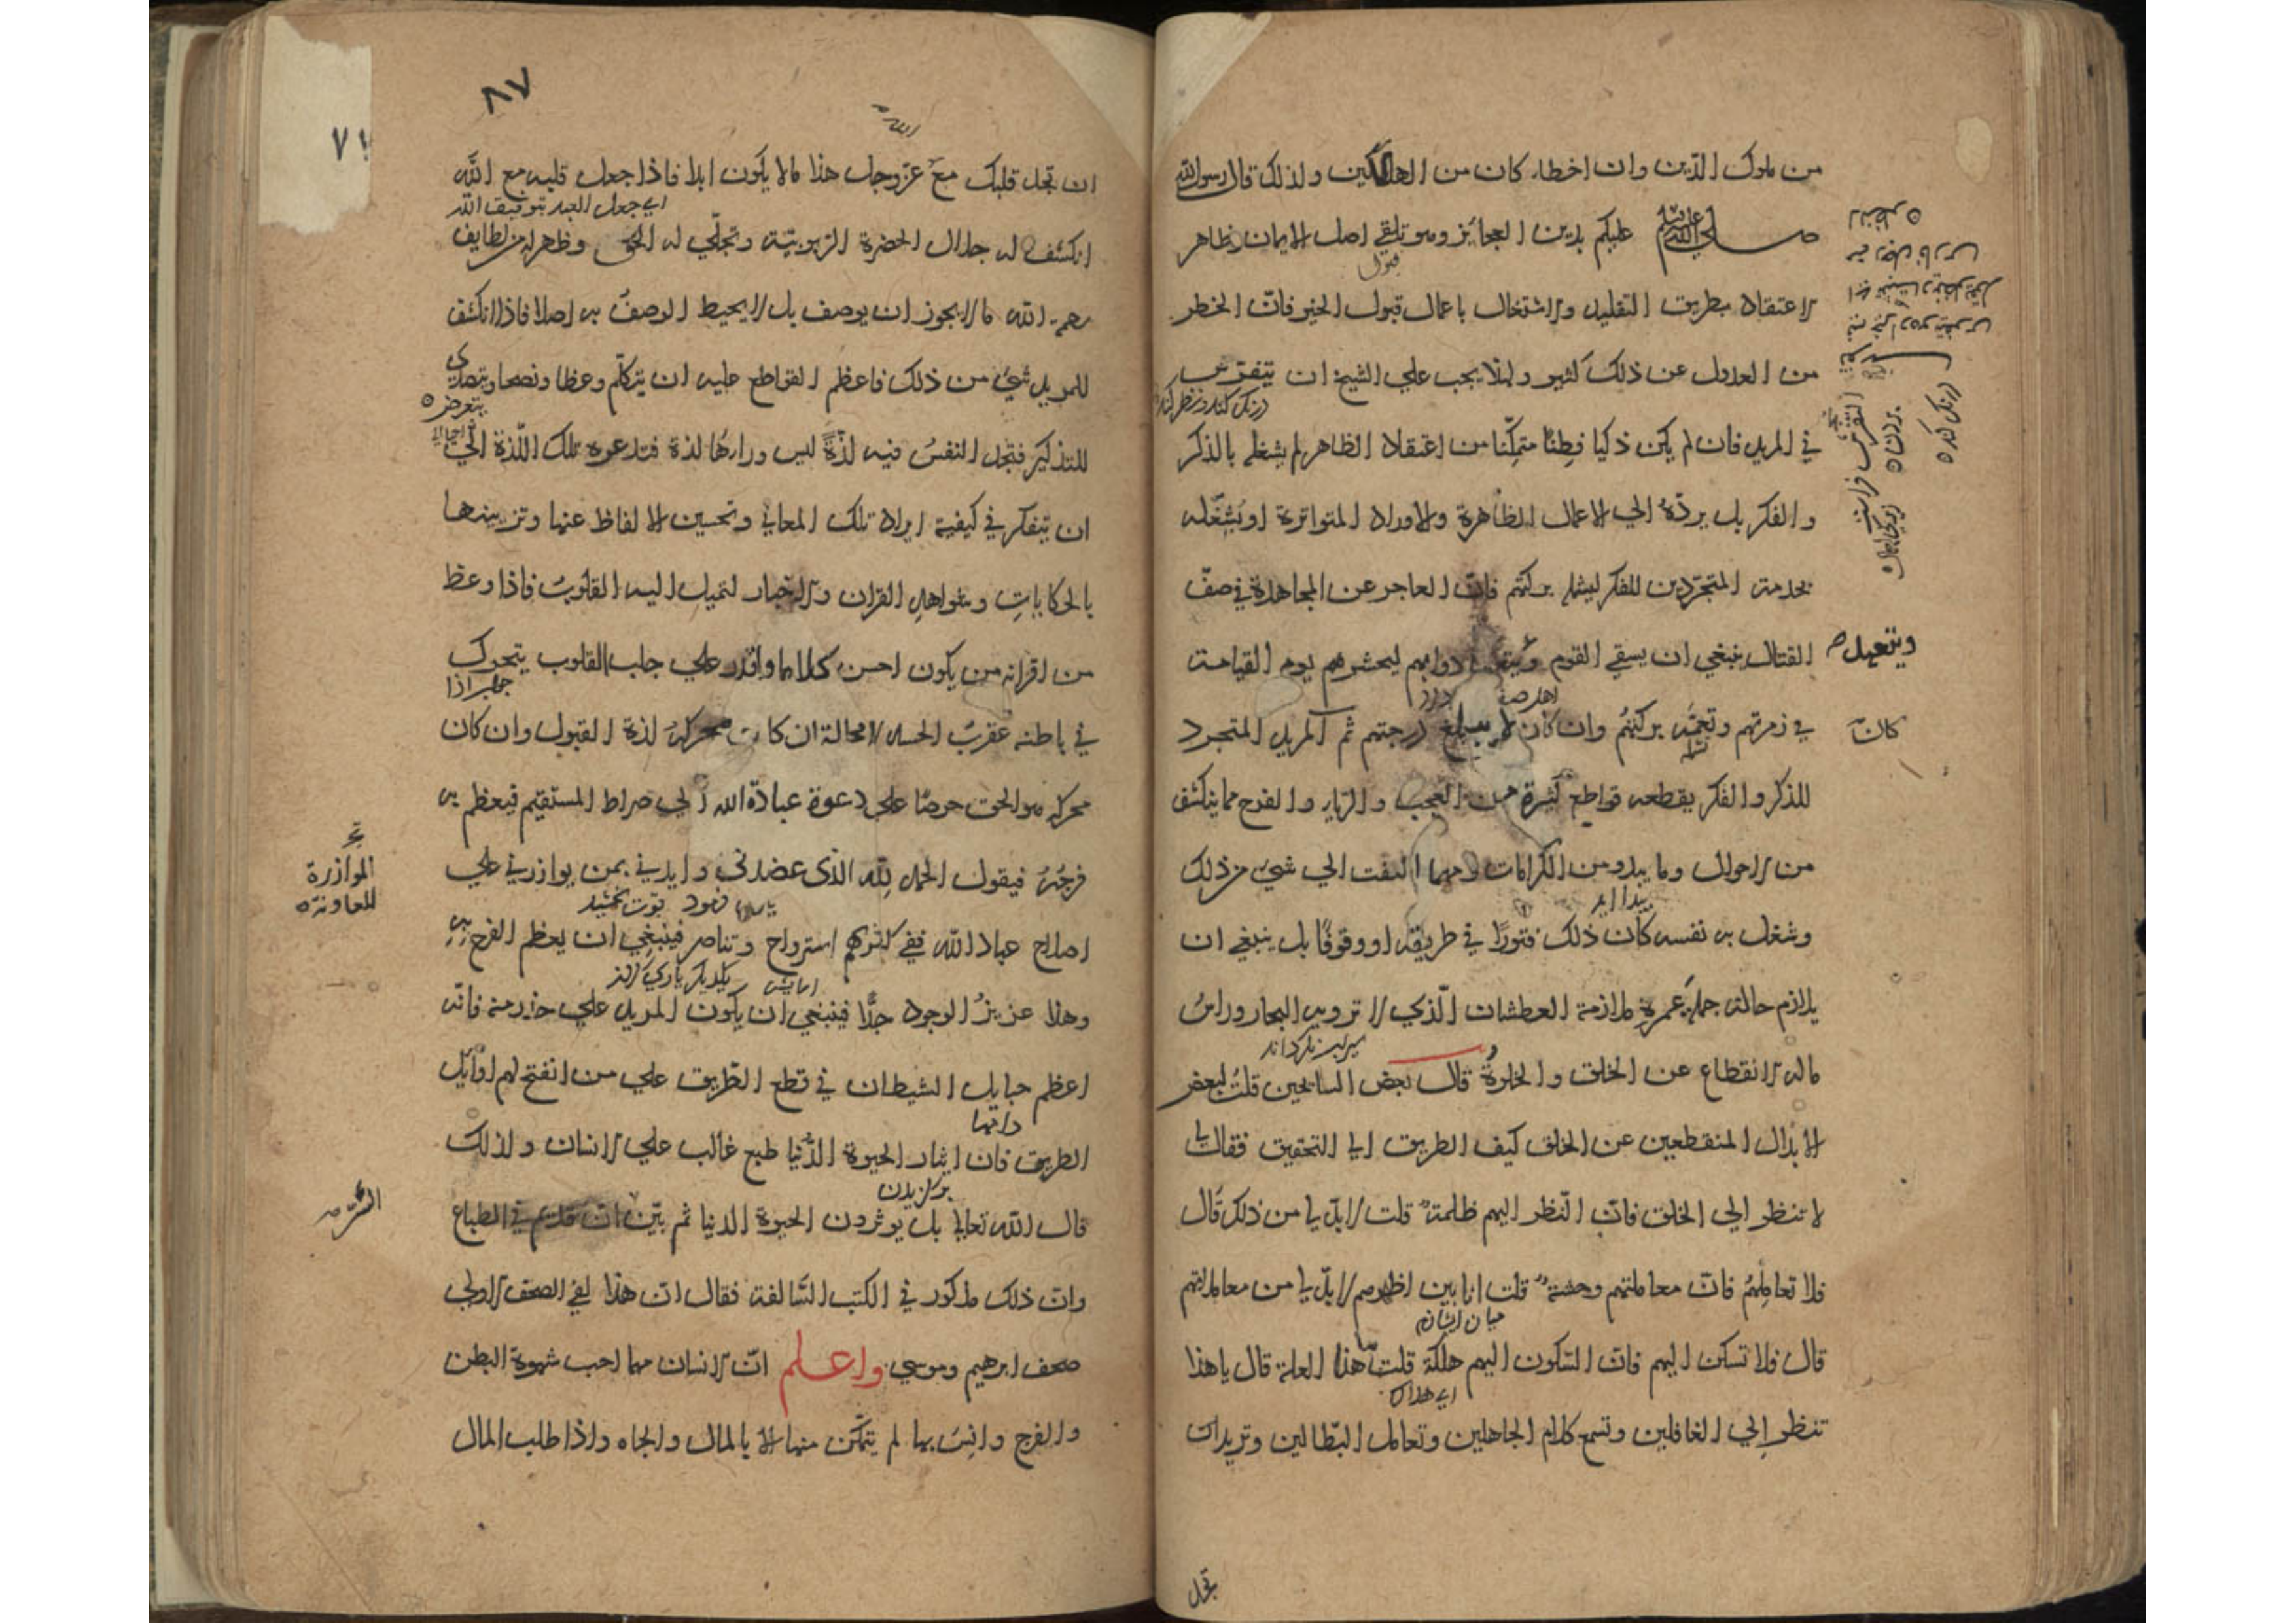 من ملوك الدّين وان اخطاء كان من الهالكين ولذلك قال رسول الله
صلى الله عليه وسلم عليكم بدين العجائز وهو تلقي اصل الايمان وظاهر
قبول
الاعتقاد بطريق التقليد والاشتغال باعمال قبول الخير فانّ الخطر
من العدول عن ذلك كثير ولهذا يجب علي الشيخ ان يتفرّس
درنك كند ونظر كند
في المريد فان لم يكن ذكيا فطنًا متمكّنا من اعتقاد الظاهر لم يشغله بالذكر
والفكر بل يردّه الي الاعمال الظاهرة والاوراد المتواترة او يشغّله
بخدمة المتجرّدين للفكر ليشمله بركتهم فانّ العاجز عن المجاهدة في صفّ
القتال ينبغي ان يسقي القوم ويتعهد دوابهم ليحشرهم يوم القيامة
ويتعهد صح
في زمرتهم وتعمّه بركتهم وان كان لا يبلغ درجتهم ثم المريد المتجرد
كان
للذكر والفكر يقطعه قواطع كثيرة من العجب والرياء والفرح مما ينكشف
من الاحوال وما يبدو من الكرامات ومهما التفت الي شيء من ذلك
پيدا آيد
وشغل به نفسه كان ذلك فتورًا في طريقه او وقوفًا بل ينبغي ان
يلازم حاله جملة عمره ملازمة العطشان الّذي لا ترويه البحار وراسُ
سيراب نكرداند
ماله الانقطاع عن الخلق والخلوةُ قال بعض السايحين قلتُ لبعض
الابدال المنقطعين عن الخلق كيف الطريق الي التحقيق فقال لي
لا تنظر الي الخلق فانّ النّظر اليهم ظلمة قلت لا بدّ لي من ذلك قال
فلا تعاملهُم فانّ معاملتهم وحشة قلت انا بين اظهرهم لا بدّ لي من معاملتهم
ميان ايشانم
قال فلا تسكن اليهم فانّ السّكون اليهم هلكة قلت هذا العلة قال يا هذا
تنظر الي الغافلين وتسمع كلام الجاهلين وتعامل البطّالين وتريد ان
تجل
٨٧
٧١
ان تجد قلبك مع عزّ وجل هذا مالا يكون ابدا فاذا جعل قلبه مع الله
اي جعل العبد بتوفيق الله
انكشف له جلال الحضرة الربوبيّة وتجلّي له الحق وظهر له من لطايف
رحمة الله ما لا يجوز ان يوصف بل لا يحيط الوصفُ به اصلا فاذا انكشف
للمريد شيء من ذلك فاعظم القواطع عليه ان يتكلّم وعظا ونصحا ويتصدّى
يتعرض
للتذكير فتجد النفسُ فيه لذّةً ليس وراءها لذة فتدعوه تلك اللّذة الي
ان يتفكر في كيفية ايراد تلك المعاني وتحسين الالفاظ عنها وتزيينها
بالحكاياتِ وشواهدِ القران والاخبار لتميل اليه القلوبُ فاذا وعظ
من اقرانه من يكون احسن كلاما واقدر علي جلب القلوب يتحرك
في باطنه عقربُ الحسد لا محالة ان كانت محركهُ لذة القبول وان كان
محركه هو الحق حرصًا علي دعوة عباد الله الي صراط المستقيم فيعظم به
فرحُهُ فيقول الحمد لله الذي عضدني وايدني بمن يوازرني علي
الموازرة
المعاونة
اصلاح عباد الله ففي كثرتهم استرواح وتناصر فينبغي ان يعظم الفرح بهِ
يكديكر ياري كردن
وهذا عزيزُ الوجود جدًّا فينبغي ان يكون المريد علي حذر منه فانّه
اعظم حبايل الشيطان في قطع الطّريق علي من انفتح لهم اوايل
الطريق فان ايثار الحيوة الدّنيا طبع غالب علي الانسان ولذلك
بركزيدن
قال الله تعالي بل يوثرون الحيوة الدنيا ثم بيّن انّ قديم في الطباع
وانّ ذلك مذكور في الكتب السّالفة فقال انّ هذا لفي الصحف الاولي
صحف ابرهيم وموسي واعلم انّ الانسان مهما احب شهوة البطن
والفرج وانِسَ بها لم يتمكّن منها الا بالمال والجاه واذا طلب المال